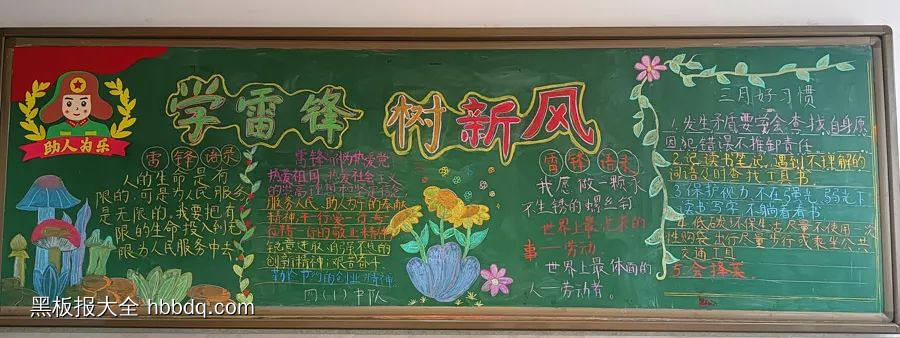 学雷锋 树新风
助人为乐
雷锋语录
人的生命是有
限的,可是为人民服务
是无限的,我要把有
限的生命投入到无
限为人民服务中去
雷锋精神热爱党
热爱祖国 热爱社会主义
的崇高理想和坚定信念
服务人民,助人为乐的奉献
精神,干一行爱一行,专一
行精一行的敬业精神
锐意进取,自强不息的
创新精神;艰苦奋斗
勤俭节约的创业精神
四(1)中队
雷锋语录
我愿做一颗永
不生锈的螺丝钉
世界上最光荣的
事——劳动
世界上最体面的
人——劳动者。
三月好习惯
1.发生矛盾要学会查找自身原
因,犯错误不推卸责任
2.记读书笔记,遇到不理解的
词语及时查找工具书
3.保护视力,不在强光、弱光下
读书写字,不躺着看书
4.低碳环保生活,尽量不使用一次
性购袋,出行尽量步行或乘坐公共
交通工具
5.会择菜
黑板报大全 hbbdq.com